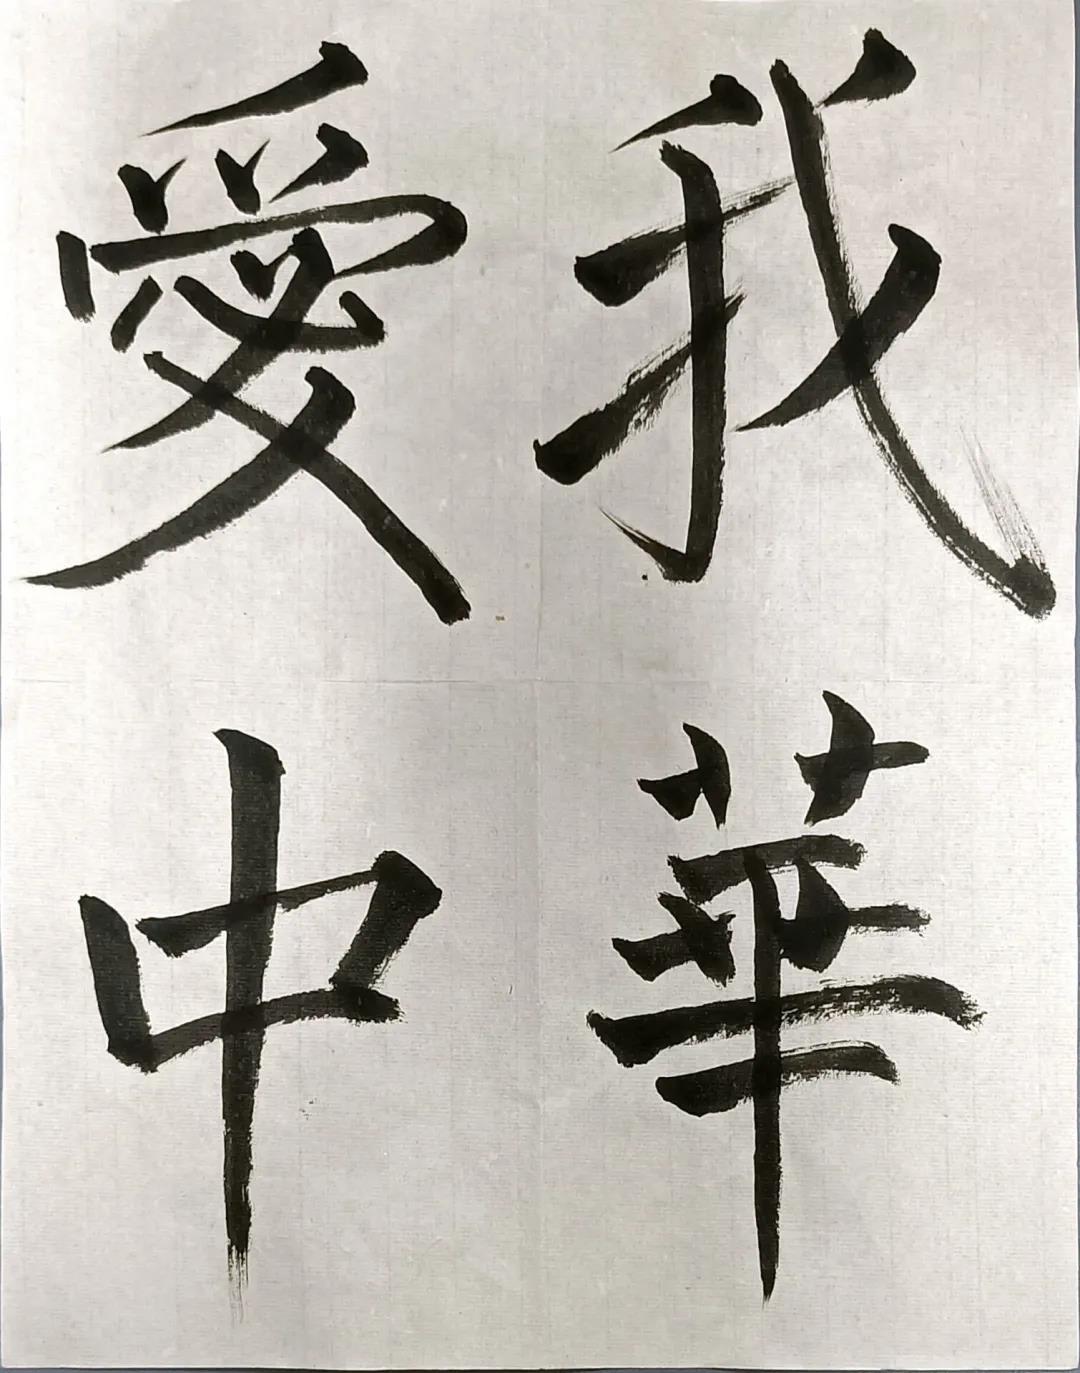 愛我
中華